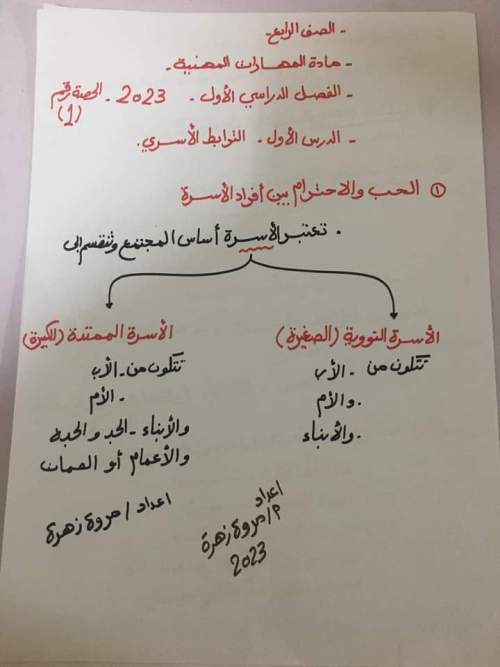 - الصف الرابع.
- مادة المهارات المهنية.
- الفصل الدراسي الأول. 2023. الحصة رقم (1)
- الدرس الأول. الترابط الأسري.
① الحب والاحترام بين أفراد الأسرة
. تعتبر الأسرة أساس المجتمع وتنقسم إلى
الأسرة النووية (الصغيرة)
تتكون من - الأب
. والأم
. والأبناء
الأسرة الممتدة (الكبيرة)
تتكون من - الأب
- الأم
والأبناء - الجد والجدة
والأعمام أو العمات
اعداد / مروة زهرة
اعداد
م / مروة زهرة
2023